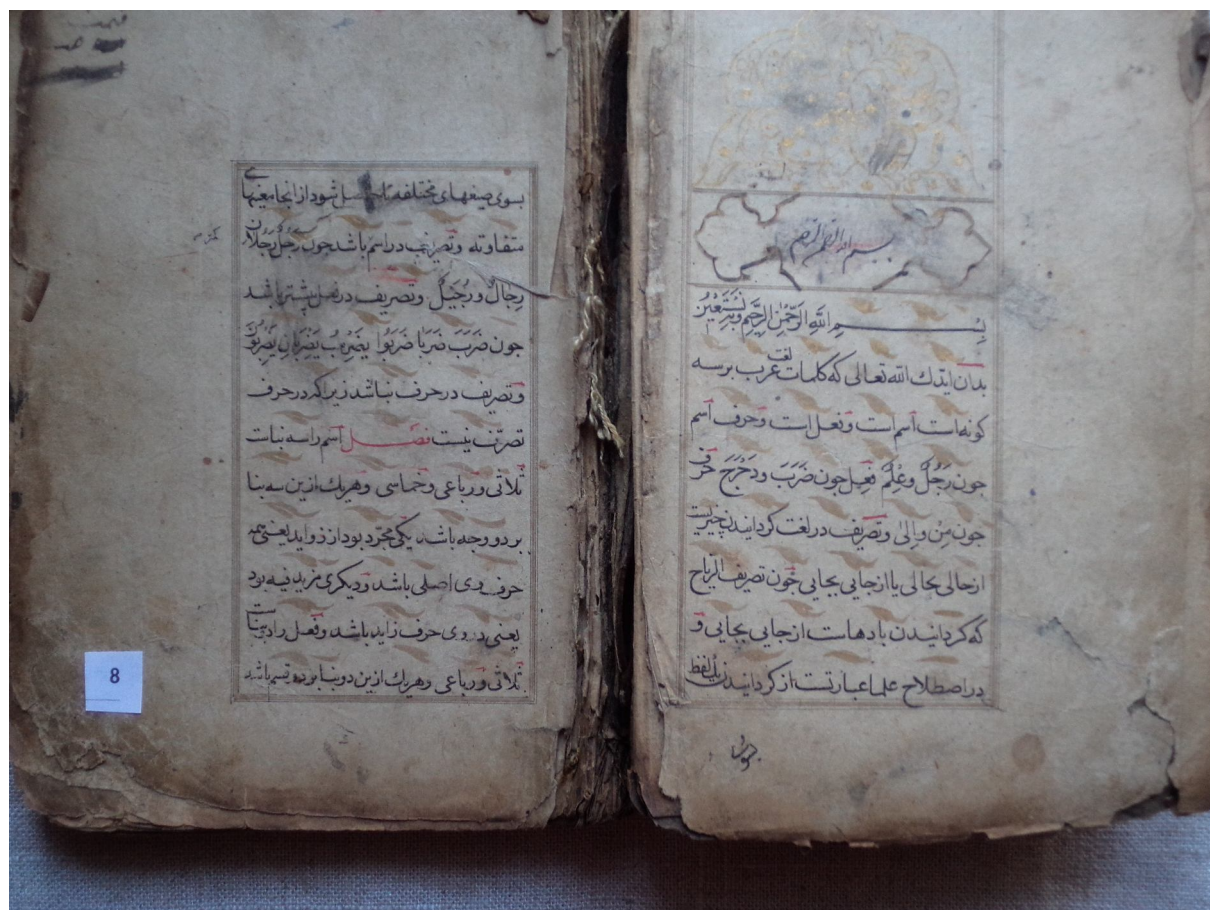 بسم الله الرحمن الرحيم
بِسْمِ اللّٰهِ الرَّحْمٰنِ الرَّحِيْمِ وَبِهِ نَسْتَعِيْنُ
بدان ايّدك اللّه تعالى كه كلمات لغت عرب برسه
كونه است اسم است و فعل است و حرف اسم
جون رَجُلٌ و عِلْمٌ فعل جون ضَرَبَ و دَحْرَجَ حرف
جون مِنْ و اِلىٰ و تصريف در لغت كردانيدن چيزيست
از حالى بحالى يا از جايى بجايى جون تصريف الرياح
كه كردانيدن بادهاست از جايى بجايى و
در اصطلاح علما عبارتست از كردانيدن يك لفظ
بسوى
بسوى صيغهاى مختلفه تا حاصل شود از انجا معنيهاى
متفاوته و تصريف در اسم باشد جون رَجُلٌ رَجُلَانِ
رِجَالٌ و رُجَيْلٌ و تصريف در فعل بيشتر باشد
جون ضَرَبَ ضَرَبَا ضَرَبُوْا يَضْرِبُ يَضْرِبَانِ يَضْرِبُوْنَ
و تصريف در حرف نباشد زيرا كه در حرف
تصرّف نيست فصل اسم را سه بناست
ثلاثى و رباعى و خماسى و هريك ازين سه بنا
بر دو وجه باشد يكى مجرّد بود از زوايد يعنى همه
حرف وى اصلى باشد و ديكرى مزيد فيه بود
يعنى در وى حرف زايد باشد و فعل را دو بناست
ثلاثى و رباعى و هريك ازين دو بنا بر دو قسم باشد
8